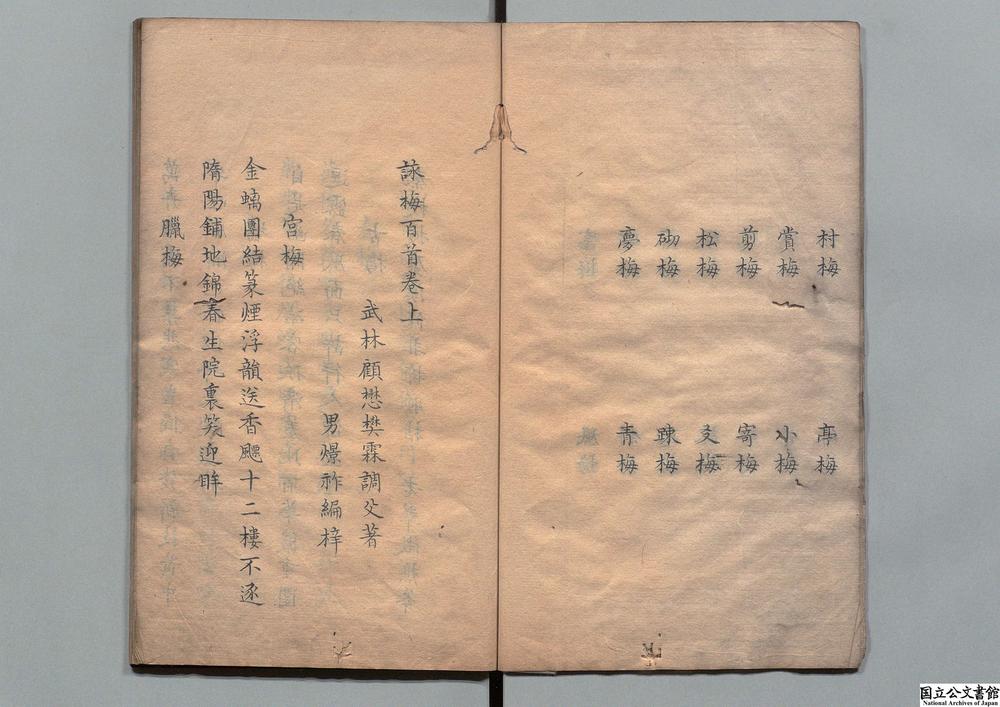 村梅　亭梅
賞梅　小梅
剪梅　寄梅
松梅　友梅
砌梅　疎梅
夢梅　青梅
詠梅百首卷上
武林顧懋樊霖調父著
男爆祚編梓
宮梅
金螭團結篆煙浮韻送香颸十二樓不逐
隋陽鋪地錦春生院裏笑迎眸
臘梅
国立公文書館
National Archives of Japan